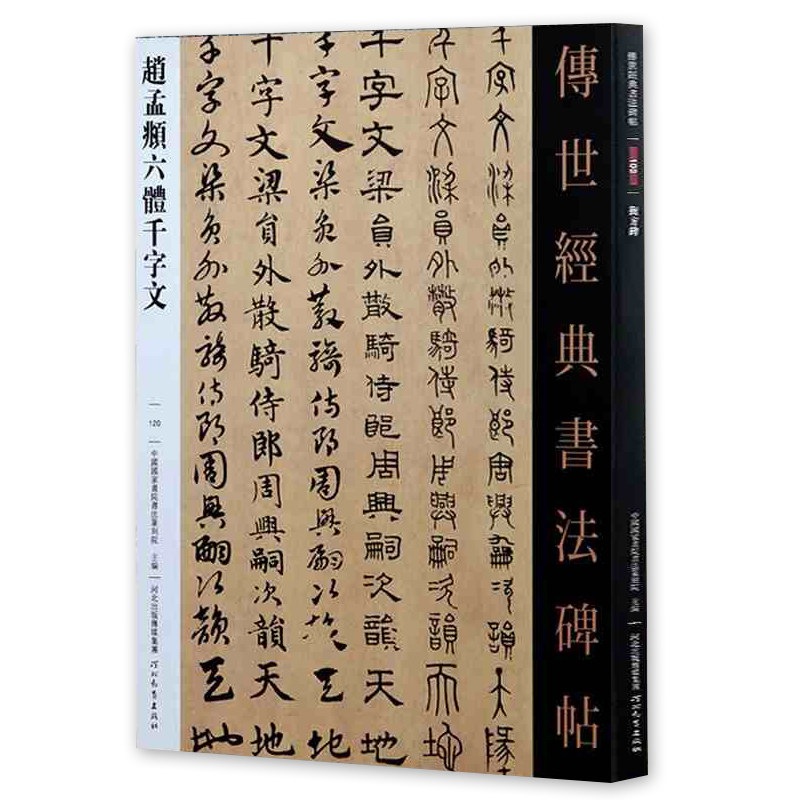 傳世經典書法碑帖
109
中國國家畫院書法篆刻院 主編
河北出版傳媒集團
河北教育出版社
傳世經典書法碑帖
千字文梁員外散騎侍郎周興嗣次韻天地
千字文梁員外散騎侍郎周興嗣次韻天地
千字文梁員外散騎侍郎周興嗣次韻天地
千字文梁員外散騎侍郎周興嗣次韻天地
千字文梁員外散騎侍郎周興嗣次韻天地
千字文梁員外散騎侍郎周興嗣次韻天地
趙孟頫六體千字文
120
中國國家畫院書法篆刻院 主編
河北出版傳媒集團
河北教育出版社